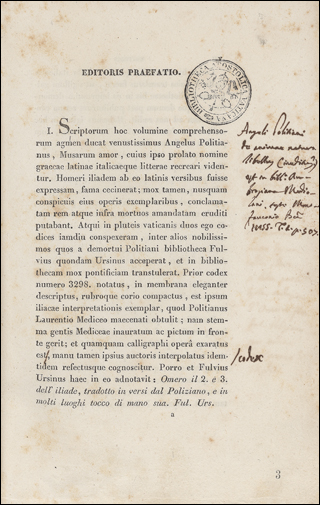 EDITORIS PRAEFATIO.
BIBLIOTHECA APOSTOLICA VATICANA
I. Scriptorum hoc volumine comprehenso-
rum agmen ducat venustissimus Angelus Politia-
nus, Musarum amor, cuius ipso prolato nomine
graecae latinae italicaeque litterae recreari viden-
tur. Homeri iliadem ab eo latinis versibus fuisse
expressam, fama cecinerat; mox tamen, nusquam
conspicuis eius operis exemplaribus, conclama-
tam rem atque infra mortuos amandatam eruditi
putabant. Atqui in pluteis vaticanis duos ego co-
dices iamdiu conspexeram, inter alios nobilissi-
mos quos a demortui Politiani bibliotheca Ful-
vius quondam Ursinus acceperat, et in biblio-
thecam mox pontificiam transtulerat. Prior codex
numero 3298. notatus, in membrana eleganter
descriptus, rubroque corio compactus, est ipsum
iliacae interpretationis exemplar, quod Politianus
Laurentio Mediceo maecenati obtulit; nam stem-
ma gentis Mediceae inauratum ac pictum in fron-
te gerit; et quamquam calligraphi operâ exaratus
est, manu tamen ipsius auctoris interpolatus iden-
tidem refectusque cognoscitur. Porro et Fulvius
Ursinus haec in eo adnotavit: Omero il 2. e 3.
dell' iliade, tradotto in versi dal Poliziano, e in
molti luoghi tocco di mano sua. Ful. Urs.
a
Angeli Politiani
de animae natura
est in bibl. Am-
brosiana Medio-
lani
codex
3